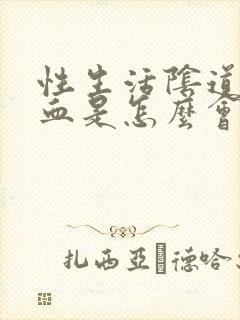 性生活陰道
血是怎麼會
扎西亞·德哈